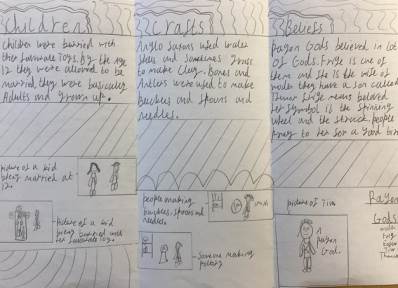 Children
Children were burried with
ther favourate toys. By the age
12 they were allowed to be
married, they were basicaley
Adults and grown up.
picture of a kid
being married at
12.
picture of a kid
being burried with
her favourate toy.
Crafts
Anglo Saxons used
they and Sometimes Grass
to make Clay. Bones and
Antlers were used to make
Buckles and Spoons and
needles.
people making
buckles, spoons and
needles.
Someone making
pottery
Beliefs
Pagon Gods believed in lot
of Gods. Frige is one of
them and She is the wife of
woden they have a son called
Thunor Frige means beloved
her Symbol is the Spinning
wheel and the people
pray to her for a good
picture of Tiw
A
pagon
God.
Pagon
Gods
woden
Frig
Tiw